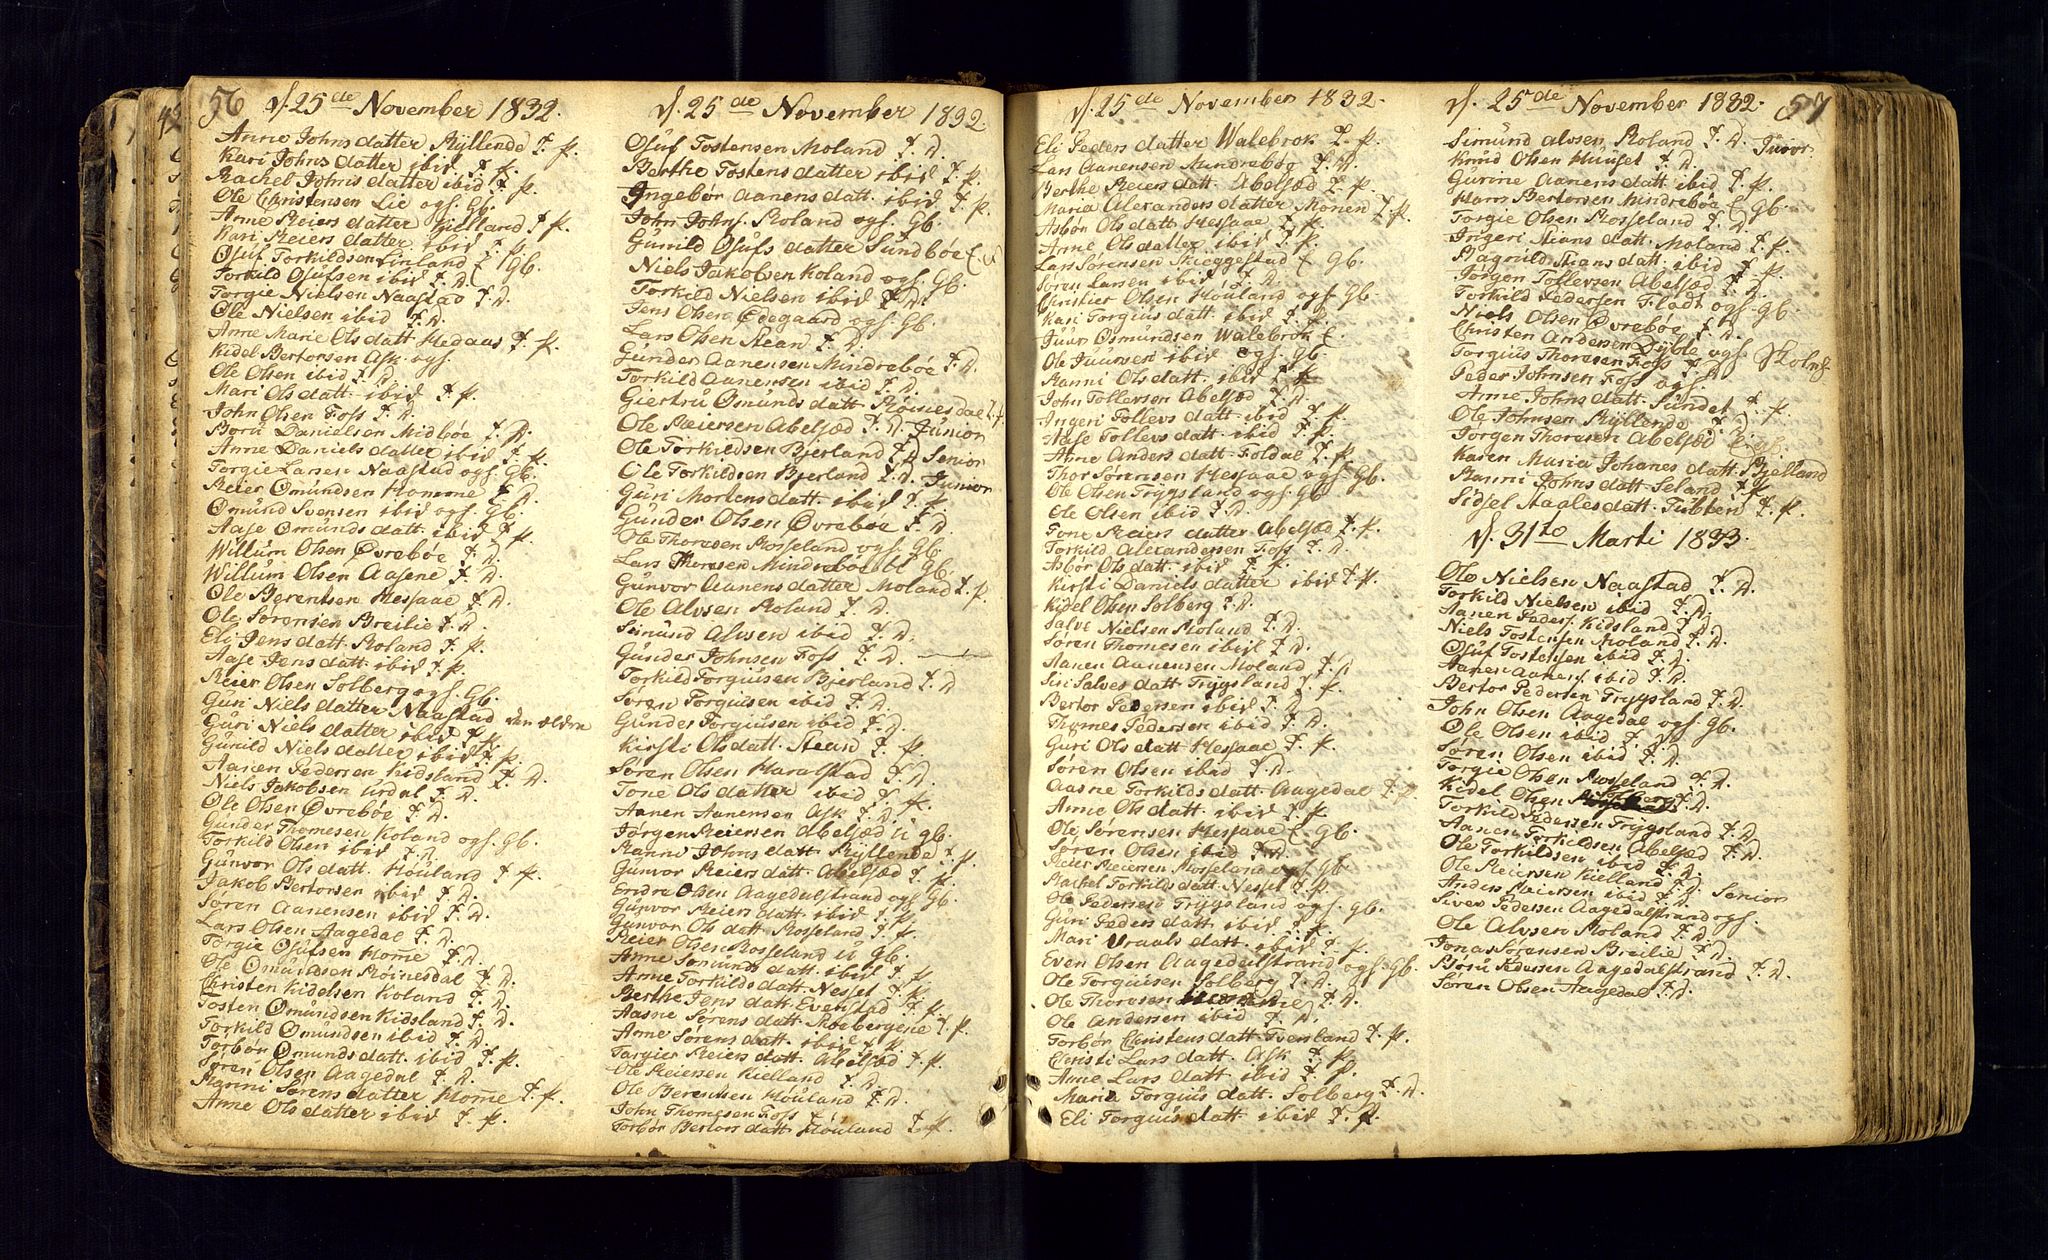 56
d. 25de November 1832.
Anne Johns datter Ryllende T. p.
Kari Johns datter ibid T. p.
Rachel Johns datter ibid T. p.
Ole Christensen Lie ogs. Gb.
Anne Reiers datter Kielland T. p.
Kari Reiers datter ibid T. p.
Oluf Torkildsen Finland E Gb.
Torkild Olufsen ibid T. D.
Torgie Nielsen Naastad T. D.
Ole Nielsen ibid T. D.
Anne Marie Ols datt. Hedaas T. p.
Kidel Bertorsen Ask ogs.
Ole Olsen ibid T. D.
Mari Ols datt. ibid T. p.
John Olsen Foss T. D.
Børu Danielsen Midbøe T. D.
Anne Daniels datter ibid T. p.
Torgie Larsen Naastad ogs. Gb.
Reier Omundsen Homme T. D.
Omund Svensen ibid ogs. Gb.
Aase Omunds datt. ibid T. p.
Willum Olsen Øvrebøe T. D.
Willum Olsen Aasene T. D.
Ole Berentsen Hessaae T. D.
Ole Sørensen Breilie T. D.
Eli Jens datt. Roland T. p.
Aase Jens datt. ibid T. p.
Reier Olsen Solberg ogs. Gb.
Guri Niels datter Naastad den ældre
Guri Niels datter ibid T. p.
Gunild Niels datter ibid T. p.
Aanen Pedersen Kidsland T. D.
Niels Jakobsen Urdal T. D.
Ole Olsen Øvrebøe T. D.
Gunder Thomesen Koland ogs. Gb.
Torkild Olsen ibid T. D.
Gunvor Ols datt. Høuland T. p.
Jakob Bertorsen ibid T. D.
Søren Aanensen ibid T. D.
Lars Olsen Aagedal T. D.
Torgie Olufsen Home T. D.
Ole Omundsen Røinesdal T. D.
Christen Kidelsen Koland T. D.
Tosten Omundsen Kidsland T. D.
Torkild Omundsen ibid T. D.
Torbør Omunds datt. ibid T. p.
Søren Olsen Aagedal T. D.
Ranni Sørens datter Home T. p.
Anne Ols datter ibid T. p.
d. 25de November 1832.
Oluf Tostensen Moland T. D.
Berthe Tostens datter ibid T. p.
Ingebør Aanens datt. ibid T. p.
John Johns. Roland ogs. Gb.
Gunild Olufs datter Sundbøe E
Niels Jakobsen Koland ogs. Gb.
Torkild Nielsen ibid T. D.
Jens Olsen Ødegaard ogs. Gb.
Lars Olsen Stean T. D.
Gunder Aanensen Mindrebøe T. D.
Torkild Aanensen ibid T. D.
Giertru Omunds datt. Røinesdal T. p.
Ole Reiersen Abelsæd T. D. Junior
Ole Torkildsen Bjerland T. D. Senior
Ole Torkildsen Bjerland T. D. Junior
Guri Mortens datt. ibid T. p.
Gunder Olsen Øvrebøe T. D.
Ole Thoresen Rosseland ogs. Gb.
Lars Thoresen Mindrebøe E Gb.
Gunvor Aanens datter Moland T. p.
Ole Alvsen Roland T. D.
Simund Alvsen ibid T. D.
Gunder Johnsen Foss T. D.
Torkild Torguisen Bjerland T. D
Søren Torguisen ibid T. D.
Gunder Torguisen ibid T. D.
Kirsti Ols datt. Stean T. p.
Søren Olsen Haralstad T. D.
Tone Ols datter ibid T. p.
Aanen Aanensen Ask T. D.
Jørgen Reiersen Abelsæd U Gb.
Ranne Johns datt. Ryllende T. p.
Gunvor Reiers datt. Abelsæd T. p.
Endre Olsen Aagedalstrand ogs. Gb.
Gunvor Reiers datt. ibid T. p.
Gunvor Ols datt. Rosseland T. p.
Reier Olsen Rosseland U Gb.
Anne Somunds datt. ibid T. p.
Anne Torkilds datt. Nesset T. p.
Berthe Jens datt. Evenstad T. p.
Aasne Sørens datt. Skoebergene T. p.
Anne Sørens datt. ibid T. p.
Targier Reiers datt. Abelsæd T. p.
Ole Reiersen Kielland T. D.
Ole Berentsen Høuland T. D.
John Thomesen Foss
Torbør Bertors datt. Høuland T. p.
d. 25de November 1832.
Eli Peders datter Walebrok T. p.
Lars Aanensen Mindrebøe T. D.
Berthe Reiers datt. Abelsæd T. p.
Maria Alexanders datter Monen T. p.
Asbør Ols datt. Hessaae T. p.
Anne Ols datter ibid T. p.
Lars Sørensen Skieggestad E Gb.
Søren Larsen ibid T. D.
Christier Olsen Høuland ogs. Gb.
Kari Torguis datt. ibid T. D.
Juur Osmundsen Walebrok E.
Ole Juursen ibid ogs. Gb.
Ranni Ols datt. ibid T. p.
John Tollevsen Abelsæd T. D.
Ingeri Tollevs datt. ibid T. p.
Aase Tollevs datt. ibid T. p.
Anne Anders datt. Foldal T. p.
Thor Sørensen Hessaae ogs. Gb.
Ole Olsen Trygsland ogs. Gb.
Ole Olsen ibid T. D.
Tone Reiers datter Abelsæd T. p.
Torkild Alexandersen Foss T. D.
Asbør Ols datt. ibid T. p.
Kirsti Daniels datter ibid T. p.
Kidel Olsen Solberg T. D.
Salve Nielsen Roland T. D.
Søren Thomesen ibid T. D.
Aanen Aanensen Moland T. D
Siri Salves datt. Trygsland T. p.
Bertor Pedersen ibid T. D.
Thomes Pedersen ibid T. D.
Guri Ols datt. Hessaae T. p.
Søren Olsen ibid T. D.
Aasne Torkilds datt. Aagedal T. p.
Anne Ols datt. ibid T. p.
Ole Sørensen Hessaae E Gb.
Søren Olsen ibid T. D.
Reier Reiersen Rosseland ogs. Gb.
Rachel Torkilds datt. Nesset T. p.
Ole Pedersen Trygsland ogs. Gb.
Guri Peders datt. ibid T. p.
Mari Vraals datt. ibid T. p.
Even Olsen Aagedalstrand ogs. Gb.
Ole Torguisen Solberg T. D.
Ole Thoresen T. D.
Ole Andersen ibid T. D.
Torbør Christens datt. Tvensland T. p.
Christi Lars datt. Ask T. p.
Anne Lars datt. ibid T. p.
Marie Torguis datt. Solberg T. D.
Eli Torguis datt. ibid T. p.
d. 25de November 1832.
57
Simund Alvsen Roland T. D. Junior
Knud Olsen Huuset T. D.
Gurine Aanens datt. ibid T. p.
Hans Bertorsen Mindrebøe E Gb.
Torgie Olsen Rosseland T. D.
Ingeri Stians datt. Moland T. p.
Ragnild Stians datt. ibid T. p.
Jørgen Tollevsen Abelsæd T. D.
Torkild Pedersen Fladt ogs. Gb.
Niels Olsen Øvrebøe T. D.
Christen Andersen Dyble ogs. Skolms.
Torguis Thoresen Foss T. D
Peder Johnsen Foss ogs.
Anne Johns datt. Sundet T. p.
Ole Johnsen Ryllende T. D
Jørgen Thoresen Abelsæd
Karen Maria Johanes datt. Bjelland
Ranni Johns datt. Seland T. p.
Sidsel Aasles datt. Tubben T. p.
d. 31to Marti 1833.
Ole Nielsen Naastad T. D.
Torkild Nielsen ibid T. D.
Aanen Peders. Kidsland T. D.
Niels Tostensen Moland T. D.
Oluf Tostensen ibid T. D.
Aanen Aanens. ibid T. D.
Bertor Pedersen Trygsland T. D.
John Olsen Aagedal ogs. Gb.
Ole Olsen ibid T. D.
Søren Olsen ibid T. D.
Torgie Olsen Rosseland T. D.
Kidel Olsen Solberg T. D.
Torkild Pedersen Trygsland T. D
Aanen Torkildsen Abelsæd T. D.
Ole Torkildsen ibid T. D.
Ole Reiersen Kielland T. D.
Anders Reiersen ibid T. D. Senior
Siver Pedersen Aagedalstrand ogs.
Ole Alvsen Roland T. D.
Jonas Sørensen Breilie T. D.
Børu Pedersen Aagedalstrand T. D.
Søren Olsen Aagedal T. D.